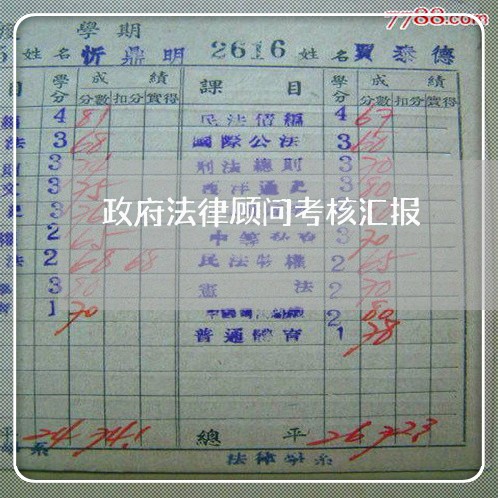 7788.com
學期
姓名 忻鼎明 2616 姓名 賈泰德
目 學分 成績 課目 學分 成績
分數 扣分 實得 分數 扣分 實得
4 81 民法債編 4 67
法 3 68 國際公法 3 60
3 刑法總則 3 70
3 75 西洋通史 3 80
政府法律顾问考核汇报
2 65 3 70
法 2 68 68 民法物權 2 65
3 80 憲法 2 70
1 70 2 80
普通體育 1 78
平 24 74.1 總平 26 72.3
系 法律學系